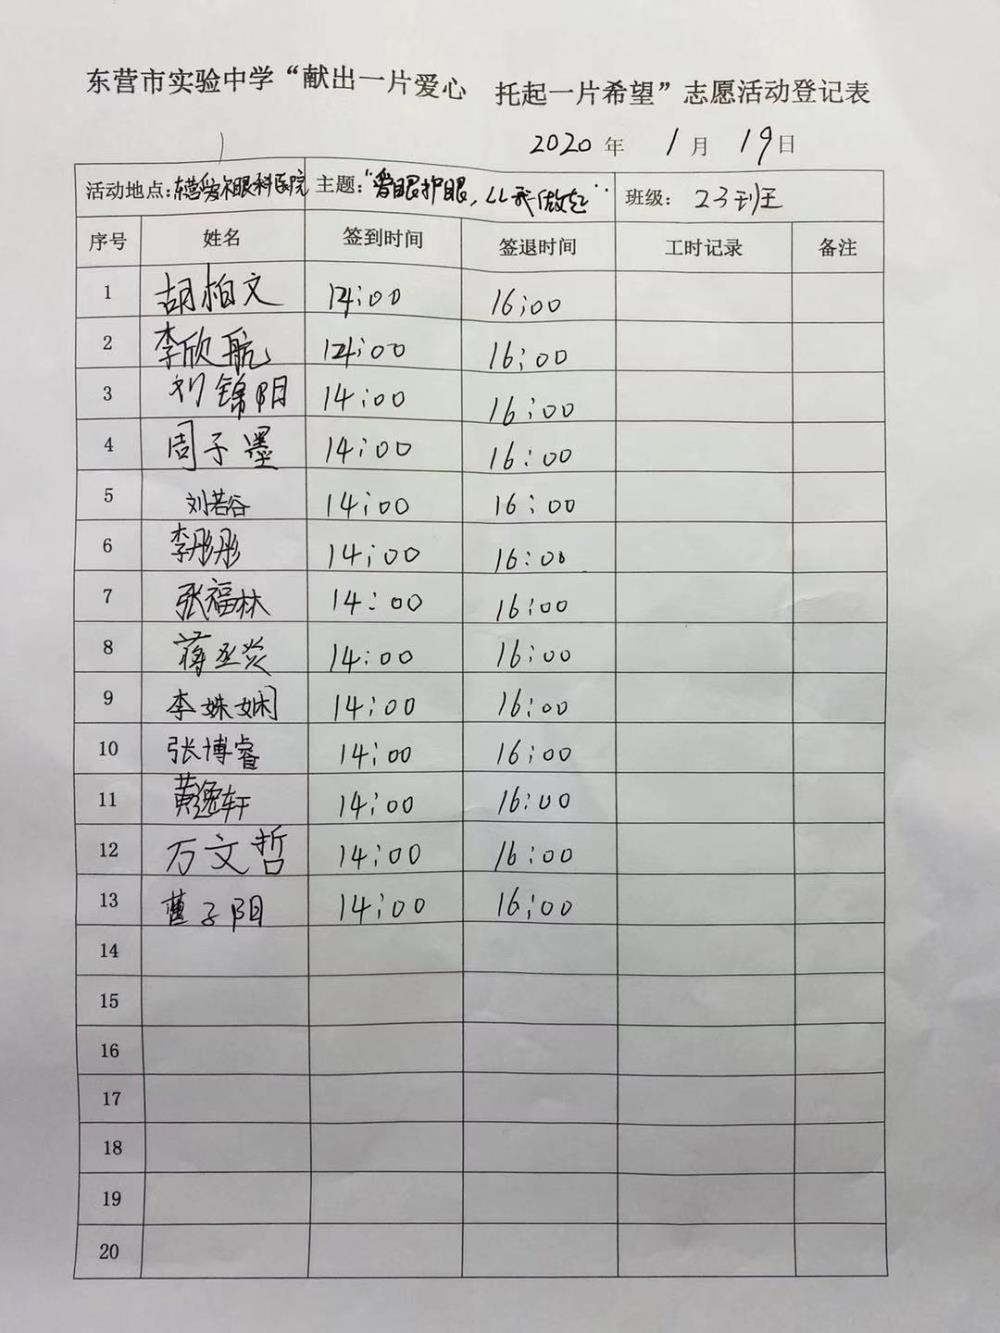 东营市实验中学“献出一片爱心 托起一片希望”志愿活动登记表
2020 年 1 月 19 日
活动地点:东营爱尔眼科医院 主题:“爱眼护眼,从我做起” 班级: 23班
序号 姓名 签到时间 签退时间 工时记录 备注
1 胡柏文 14:00 16:00
2 李欣航 14:00 16:00
3 刘锦阳 14:00 16:00
4 周子墨 14:00 16:00
5 刘若谷 14:00 16:00
6 李彤彤 14:00 16:00
7 张福林 14:00 16:00
8 蒋丞炎 14:00 16:00
9 李姝娴 14:00 16:00
10 张博睿 14:00 16:00
11 黄逸轩 14:00 16:00
12 万文哲 14:00 16:00
13 曹子阳 14:00 16:00
14
15
16
17
18
19
20